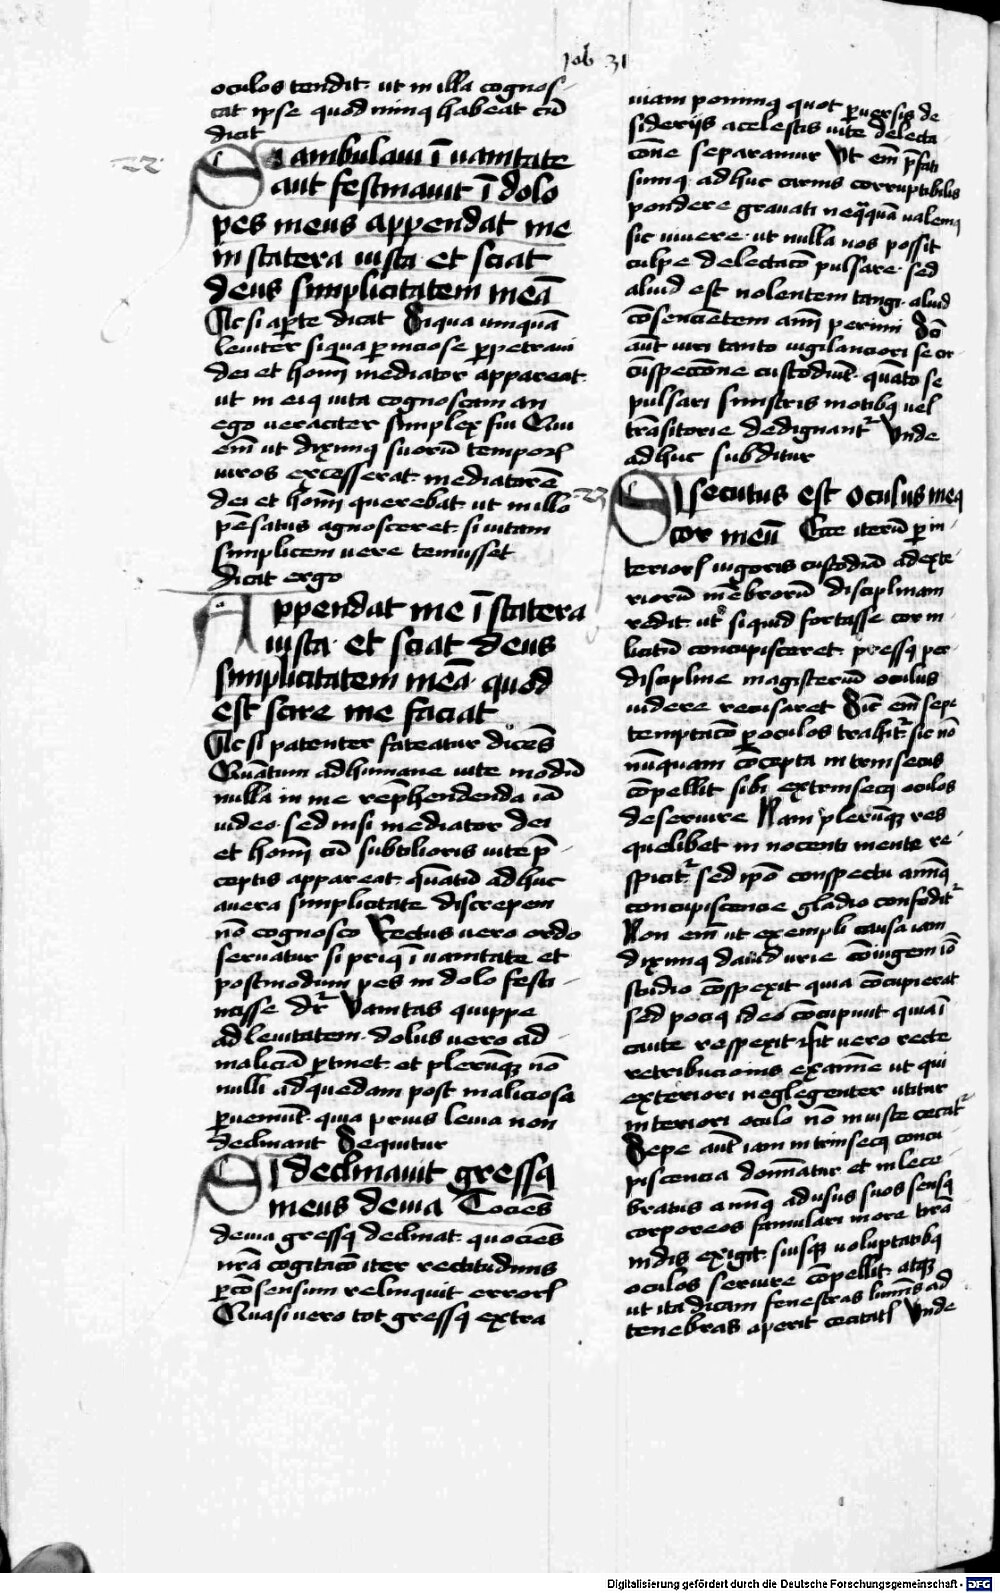 Job 31
oculos tendit · ut in illa cognos-
cat ipse quod minꝰ habeat cū
dicit
22
Si ambulaui ī uanitate
aut festinauit ī dolo
pes meus appendat me
in statera iusta · et sciat
deus simplicitatem meā
Ac si aꝑte dicat Siqua umquā
leuiter siqua ꝑniciose ꝑpetraui
dei et homī mediator appareat ·
ut in eiꝰ uita cognoscam an
ego ueraciter simplex sim Qui
em̄ ut diximꝰ suorū temporꝭ
uiros excesserat · mediatorē
dei et homī querebat · ut in illo
pēsatus agnosceret · si uitam
simplicem uere tenuisset
Dicat ergo
Appendat me ī statera
iusta · et sciat deus
simplicitatem meā · quod
est scire me faciat
Ac si patenter fateatur dicēs
Quātum ad humane uite modū
nulla in me rep̄hendenda iā
uideo · sed nisi mediator dei
et homī cū subtilioris uite p̄-
ceptis appareat · quātū adhuc
a uera simplicitate discrepem
nō cognosco Rectus uero ordo
seruatur si priꝰ ī uanitate et
postmodum pes in dolo festi-
nasse dr̄ Vanitas quippe
ad leuitatem · dolus uero ad
maliciā ꝑtinet · et plerūqꝫ nō
nulli ad quedam post maliciosa
ꝑueniūt · quia prius leuia non
declinant Sequitur
Si declinauit gressꝰ
meus deuia Tociēs
deuia gressꝰ declinat · quociēs
nr̄a cogitacō iter rectitudinis
ꝑ cōsensum relinquit errorꝭ
Quasi uero tot gressꝰ extra
uiam ponimꝰ quot ꝑuersis de
siderijs a celestis uite delecta
cōne separamur Ut em̄ p̄fati
sumꝰ adhuc carnis corruptibilis
pondere grauati neq̄quā ualemꝰ
sic uiuere · ut nulla nos possit
culpe delectacō pulsare · sed
aliud est nolentem tangi · aliud
cōsencientem aīm perimi Scī
aut uiri tanto uigilanciori se cir
cūspeccōne custodiūt · quāto se
pulsari sinistris motibꝰ uel
trāsitorie dedignantr̄ Vnde
adhuc subditur
23
Si secutus est oculus meꝰ
cor meū Ecce iterū ꝑ in-
teriorꝭ uigoris custodiā ad exte-
riorū mēbrorū disciplinam
redit · ut siquid fortasse cor in-
licitū concupisceret · pressꝰ per
discipline magisteriū oculus
uidere recusaret Sic̄ em̄ sepe
temptacō ꝑ oculos trahitr̄ · sic nō
nūquam cōcepta intrinsecus
cōpellit sibi extrinsecꝰ oculos
deseruire Nam plerūqꝫ res
quelibet innocenti mente re-
spicitr̄ · sed ip̄o conspectu animꝰ
concupiscencie gladio confoditr̄
Non em̄ ut exempli causa iam
diximꝰ dauid urie cōiugem iō
studio cōspexit quia cōcupierat
sed pociꝰ ideo cōcupiuit quia ī
caute respexit · Fit uero recte
retribucionis examīe ut qui
exteriori neglegenter utitur
interiori oculo nō iniuste cecatr̄
Sepe aut̄ iam intrinsecꝰ concu
piscencia dominatur et inlece
bratus animꝰ ad usus suos sensꝰ
corporeos famulari more tirā
nidis exigit · suisqꝫ uoluptatibꝰ
oculos seruire cōpellit · atqꝫ
ut ita dicam fenestras luminis ad
tenebras aperit cecitatꝭ Vnde
Digitalisierung gefördert durch die Deutsche Forschungsgemeinschaft - DFG